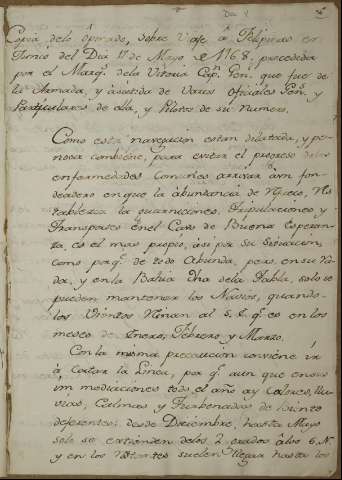 Copia delo operado, sobre Viaje a Filipinas en
Junio del Dia 11 de Mayo de 1768, precedida
por el Marq.s dela Vitoria Cap.n Gen.l que fue de
la Armada, y asistida de Varios oficiales Gen.s y
Particulares de ella, y Pilotos de su numero.
Como esta navegacion es tan dilatada, y pe-
nosa combiene, para evitar el progreso delas
enfermedades Comunes arrivar à un fon-
deadero en que la abundancia de Refresco, Res-
tablezca la Guarniciones, Tripulaciones y
Transportes en el Cavo de Buena Esperan-
za, es el mas propio, asi por su Situacion,
como por q.e de todo Abunda, pero, en su Va-
da, y en la Bahia dela Tabla, solo se
pueden mantener los Navios, quando
los Vientos Reinan al S.E. q.e es en los
meses de Enero, Febrero y Marzo.
Con la misma precaucion conviene ir
à Cortar la Linea, por q.e aun que en sus
inmediaciones todo el año ay Calores, llu-
vias, Calmas y Turbonadas de Viento
diferentes; desde Diciembre, hasta Mayo
solo se extienden delos 2 grados àlos 6 N.
y en los Restantes suelen llegar hasta los